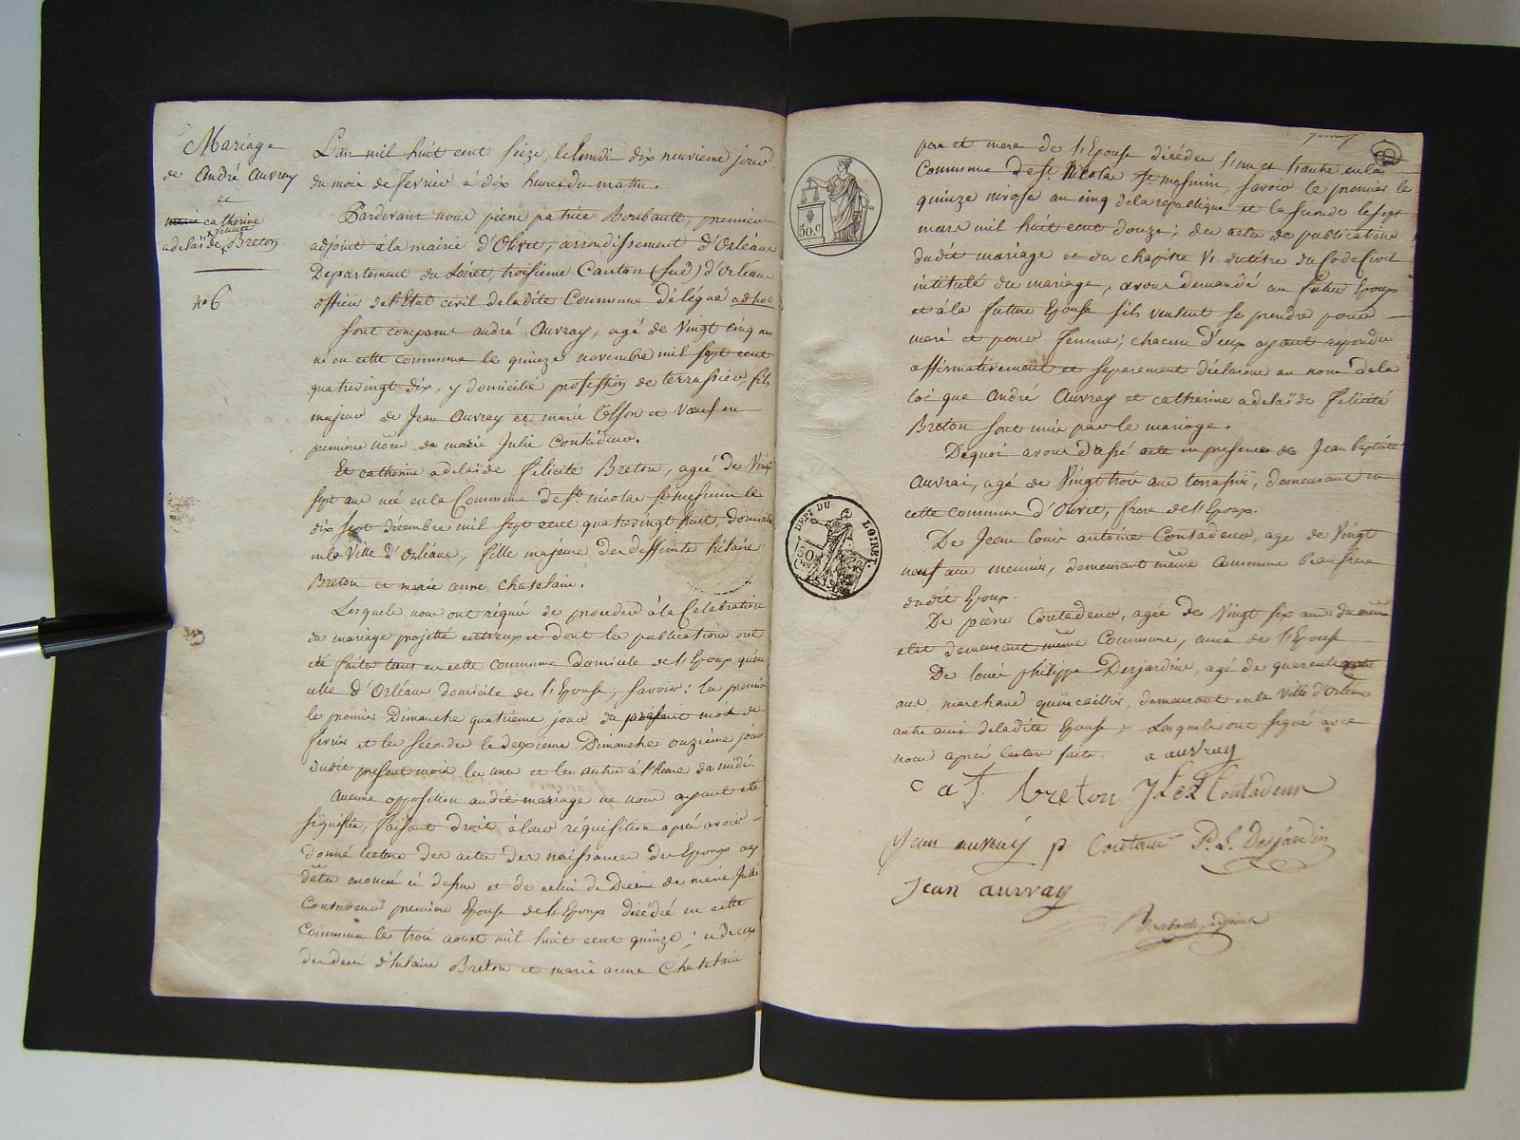 Mariage
de André Auvray
et
catherine
felicité
adelaïde Breton
n° 6
L'an mil huit cent seize, le lundi dix neuvieme jour
du mois de fevrier a dix heures du matin.
Pardevant nous pierre patrice Boubault, premier
adjoint à la mairie d'Olivet, arrondissement d'Orléans
Departement du Loiret, troisieme Canton (sud) d'Orléans
officier de l'Etat civil de ladite Commune délégué ad hoc
sont comparus andré Auvray, agé de Vingt cinq ans
né en cette commune le quinze novembre mil sept cent
quatre vingt dix, y domicilié profession de terrassier, fils
majeur de Jean Auvray et marie et Veuf en
premiere noce de marie Julie Contadeur.
Et catherine adelaïde felicité Breton, agée de Vingt
sept ans née en la Commune de St. nicolas St mesmin le
dix sept décembre mil sept cent quatre vingt huit, domiciliée
en la Ville d'Orléans, fille majeure des deffunts hilaire
Breton et marie anne Chatelain.
Lesquels nous ont requis de proceder à la Celebration
du mariage projetté entreux et dont les publications ont
été faites tant en cette commune domicile de l'Epoux qu'en
celle d'Orléans domicile de l'Epouse, savoir: la premiere
le premier Dimanche quatrieme jour du present mois de
fevrier et la seconde le deuxieme Dimanche onzieme jour
dudit present mois les unes et les autres à l'heure de midi.
Aucune opposition audit mariage ne nous ayant été
signifiée, faisant droit à leur réquisition après avoir
donné lecture des actes de naissance des Epoux
énoncé ci dessus et de celui de Decès de marie Julie
Contadeur premiere Epouse de l'Epoux décédée en cette
Commune le trois aoust mil huit cent quinze; et de ceux
des decès d'hilaire Breton et marie anne Chatelain
pere et mere de l'Epouse décédés l'un et l'autre en la
Commune de St Nicolas St mesmin, savoir le premier le
quinze nivose an cinq de la republique et la seconde le sept
mars mil huit cent douze; des actes de publications
dudit mariage et du chapitre VI du titre du Code Civil
intitulé du mariage, avons demandé au futur Epoux
et à la future Epouse s'ils veulent se prendre pour
mari et pour femme; chacun d'eux ayant repondu
affirmativement et separement déclarons au nom de la
loi que André Auvray et catherine adelaïde felicité
Breton sont unis par le mariage.
De quoi avons dressé acte en presence de Jean baptiste
Auvrai, agé de Vingt trois ans terrassier, demeurant en
cette commune d'Olivet, frere de l'Epoux.
De Jean louis antoine Contadeur, age de Vingt
neuf ans meunier, demeurant même commune beau frere
dudit Epoux.
De pierre Contadeur, agée de Vingt six ans du même
etat demeurant même Commune, amis de l'Epoux
De louis philippe Desjardins, agé de quarente quatre
ans marchand quincaillier, demeurant en la Ville d'Orléans
autre ami de ladite Epouse; Lesquels ont signé avec
nous après lecture faite. a auvray
c a f. breton J L A Contadeur
Jean auvray p Contadeur P. L. Desjardin
Jean auvray
Boubault, adjoint
50. C
DEPt DU LOIRET.
50